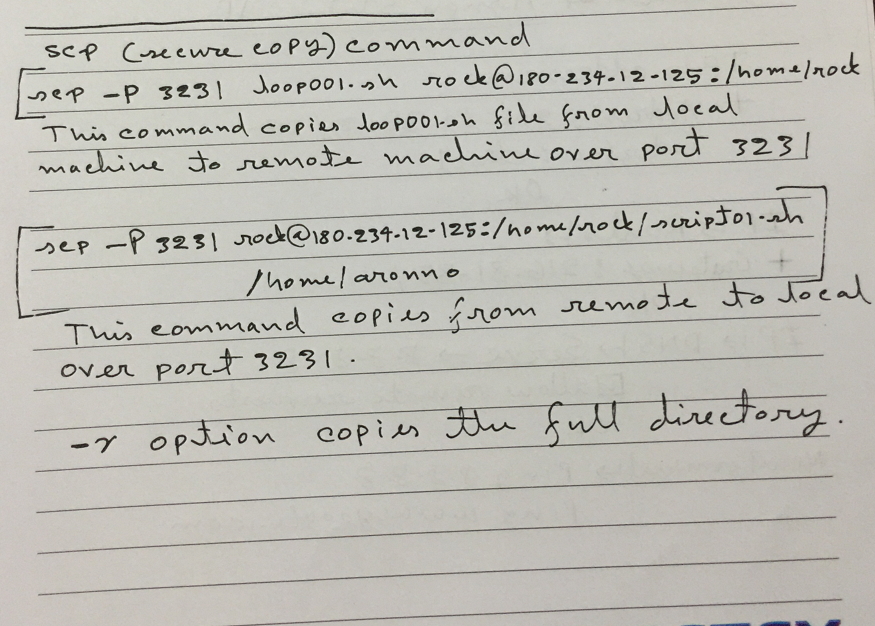 scp (secure copy) command
scp -P 3231 loop001.sh rock@180.234.12.125:/home/rock
This command copies loop001.sh file from local
machine to remote machine over port 3231
scp -P 3231 rock@180.234.12.125:/home/rock/script01.sh
/home/aronno
This command copies from remote to local
over port 3231.
-r option copies the full directory.